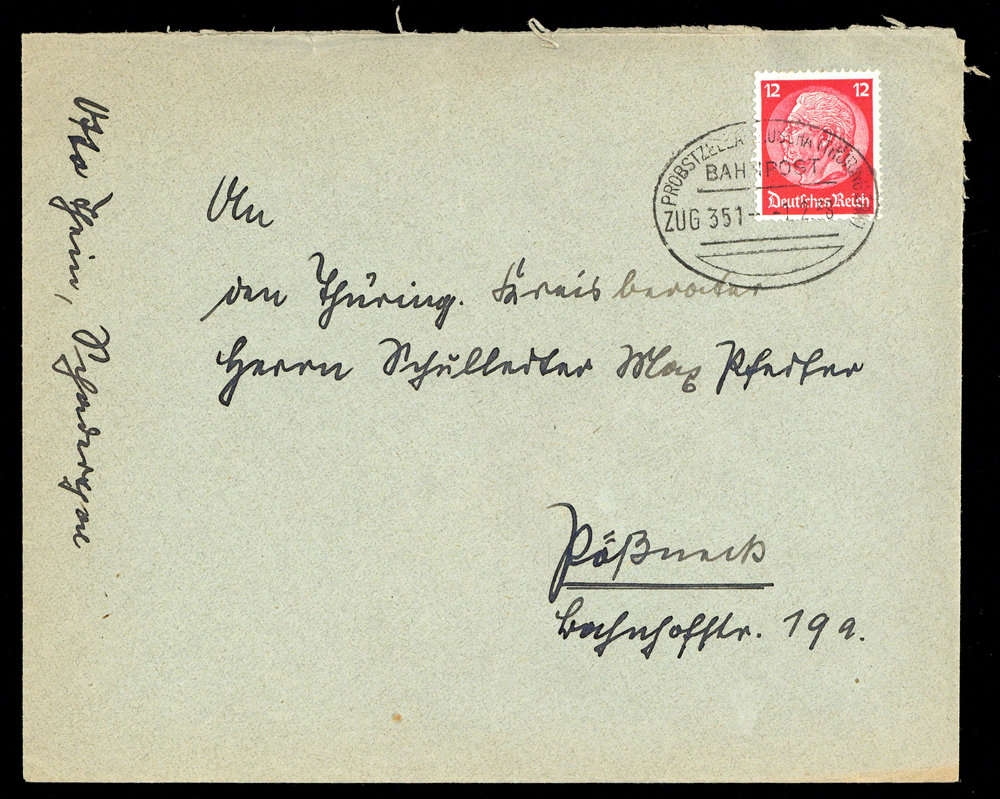 12 12
Deutsches Reich
PROBSTZELLA
BAHNPOST
ZUG 351
An
den Thüring. Kreisberater
Herrn Schulleiter Max Pfeifer
Pößneck
Bahnhofstr. 19a.
Otto Hein,